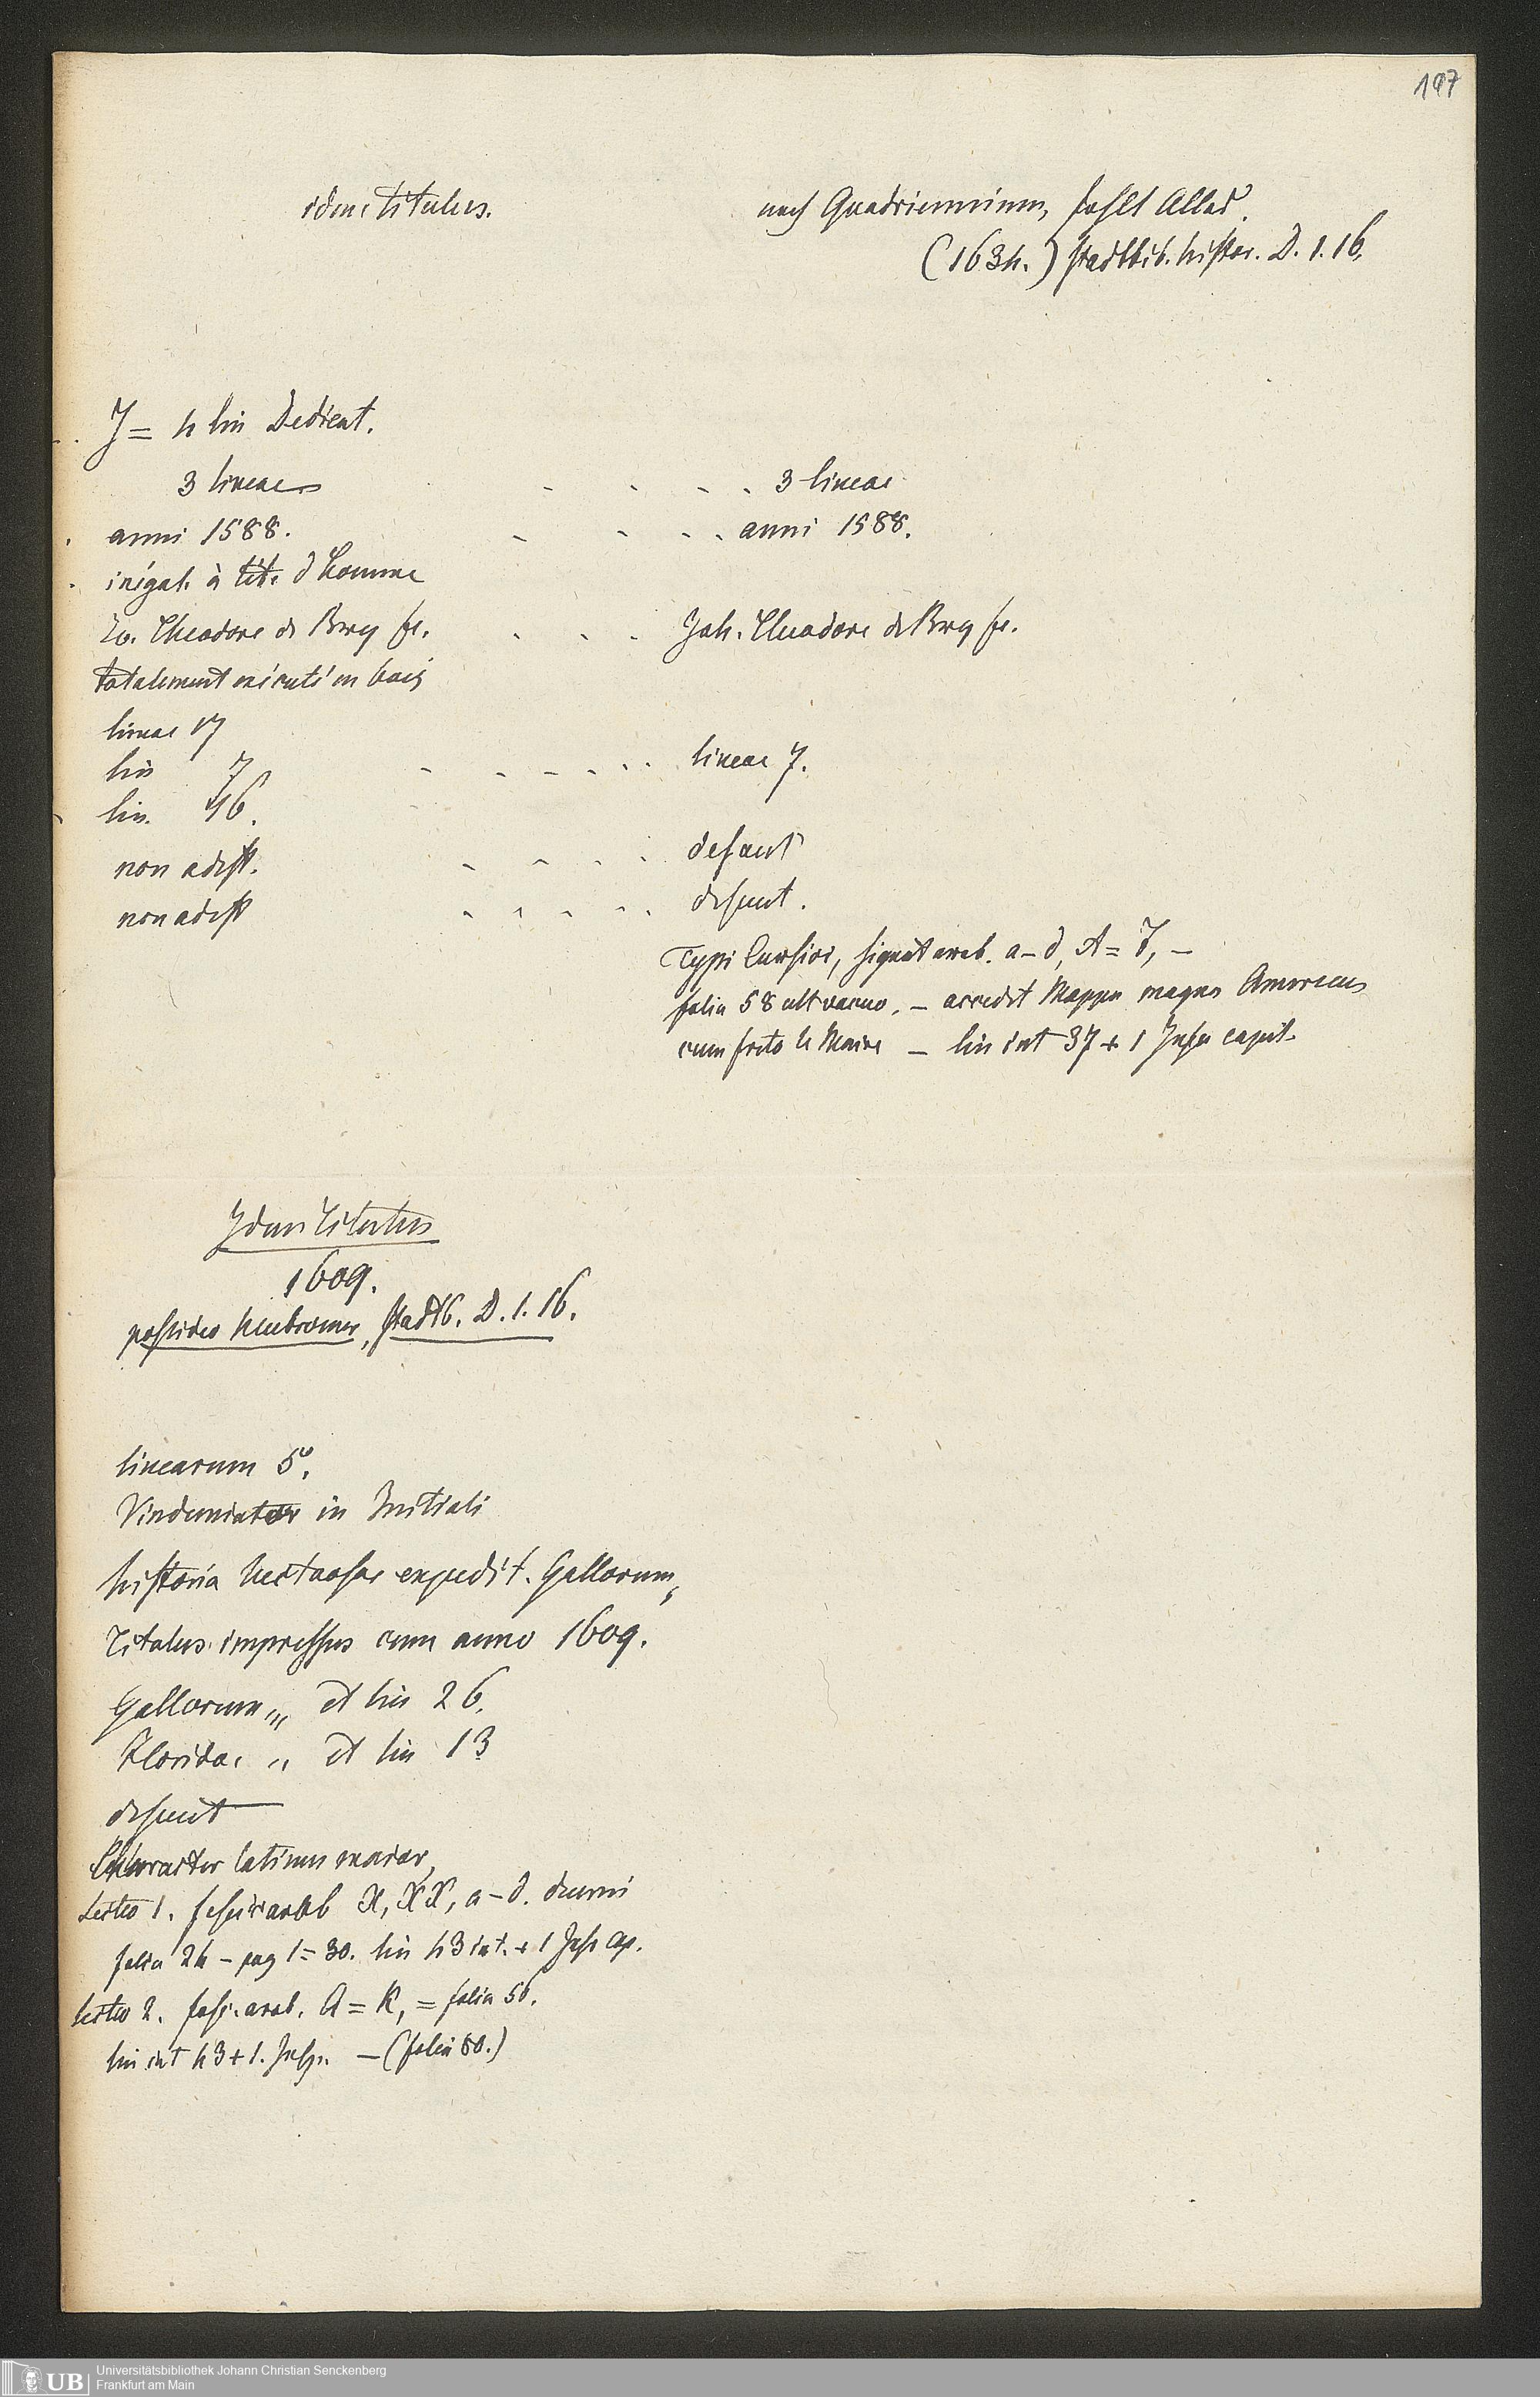 197
idem titulus.
nach Quadriennium, fehlt Allas.
(1634.) Stadtbib. histor. D. 1. 16.
J = 4 lin Dedicat.
3 lineae . . . . 3 lineae
anni 1588. . . . . anni 1588.
inégal. à tête d'homme
Io. Theodore de Bry fe. . . . Joh. Theodore de Bry fe.
totalement exécuté en bois
lineae 17
lin 7 . . . . . . lineae 7.
lin. 46.
non adest. . . . . desunt
non adest . . . . . desunt.
Typi Cursivi, signat arab. a-d, A = J, –
folia 58 ult vacuo. – accedit Mappa magna Americae
cum freto le Maire – lin int 37 + 1 Inscr capit.
Idem Titulus
1609.
possideo, Stadtb. D. 1. 16.
linearum 5.
Vindemiator in Initiali
historia expedit. Gallorum,
Titulus impressus cum anno 1609.
Gallorum,,, et lin 26.
Floridae ,, et lin 13
desunt
Character latinus maior,
Sectio 1. X, XX, a-d. duerni
folia 24 – pag 1 = 30. lin 43 int. + 1 Inscr cap.
Sectio 2. arab. A = K, = folia 56.
lin int 43 + 1. Inscr. – (folia 80.)
UB
Universitätsbibliothek Johann Christian Senckenberg
Frankfurt am Main